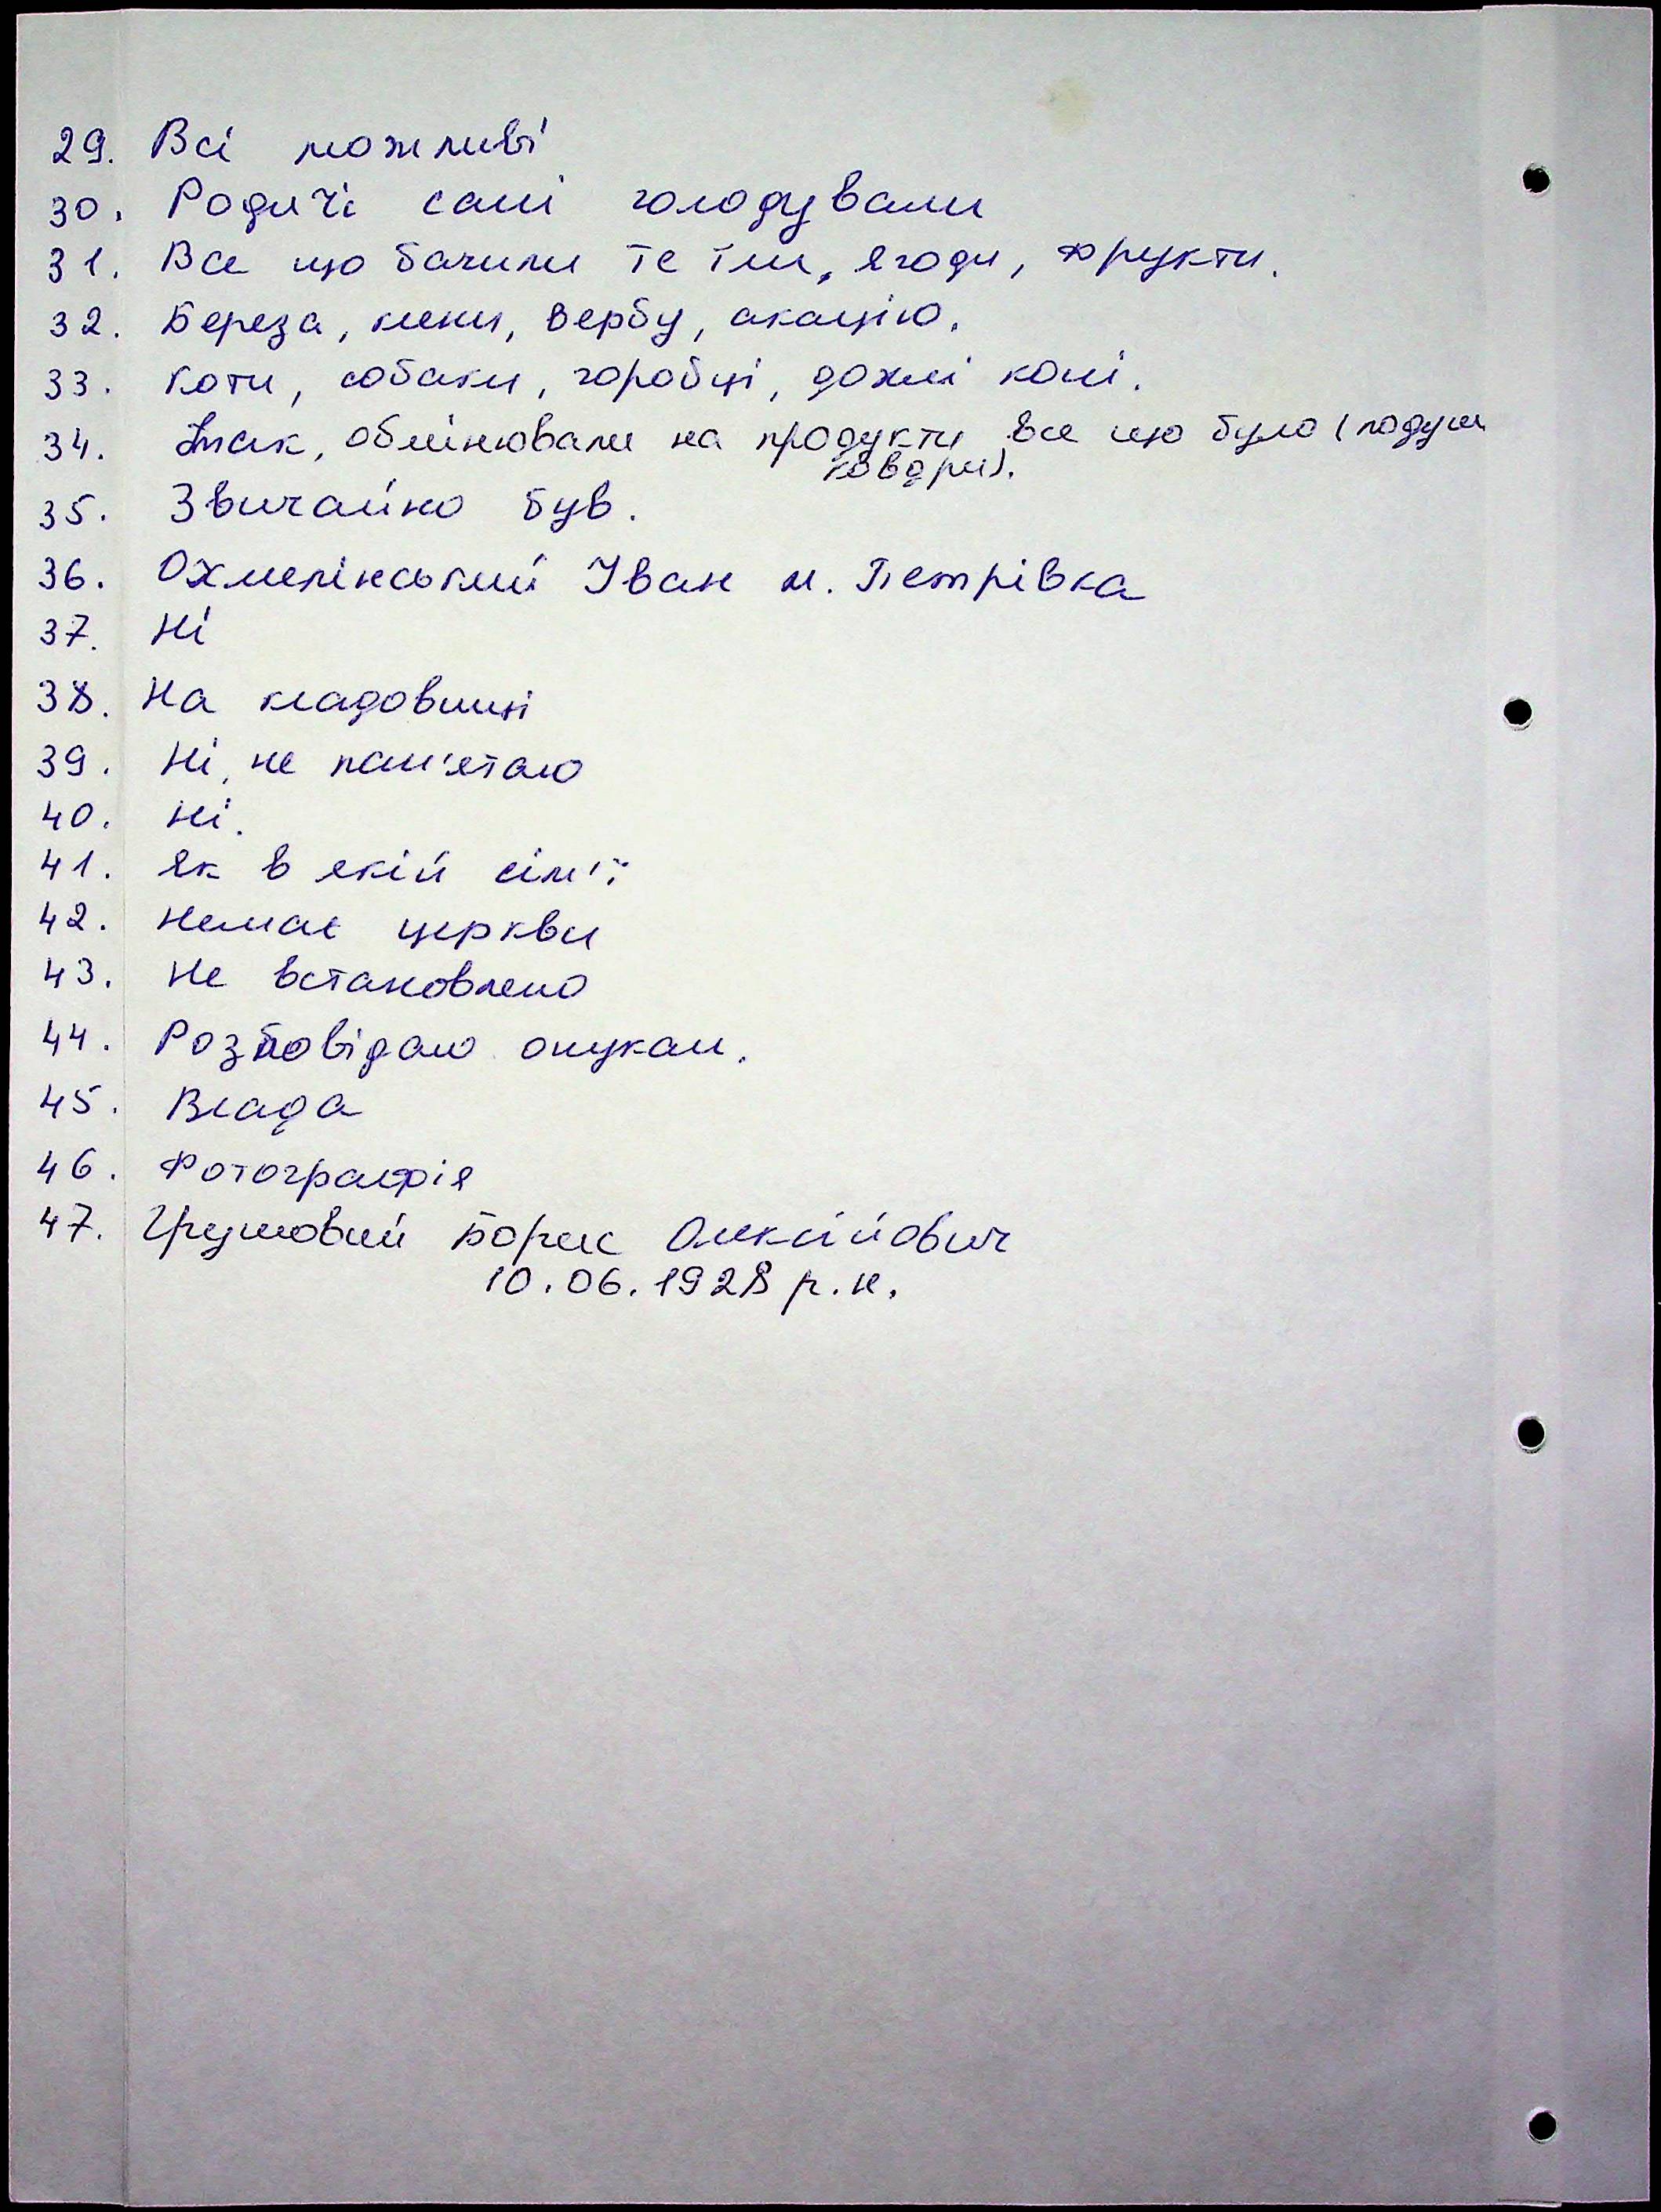 29. Всі можливі
30. Родичі самі голодували
31. Все що бачили те їли, ягоди, фрукти.
32. Береза, клени, вербу, акацію.
33. Коти, собаки, горобці, дохлі коні.
34. Так, обмінювали на продукти все що було (подуш
ковдри).
35. Звичайно був.
36. Охмелінський Іван м. Петрівка
37. Ні
38. На кладовищі
39. Ні, не пам'ятаю
40. Ні.
41. Як в якій сім'ї
42. Немає церкви
43. Не встановлено
44. Розповідаю онукам.
45. Влада
46. Фотографія
47. Грушовий Борис Олексійович
10.06.1928 р.н.